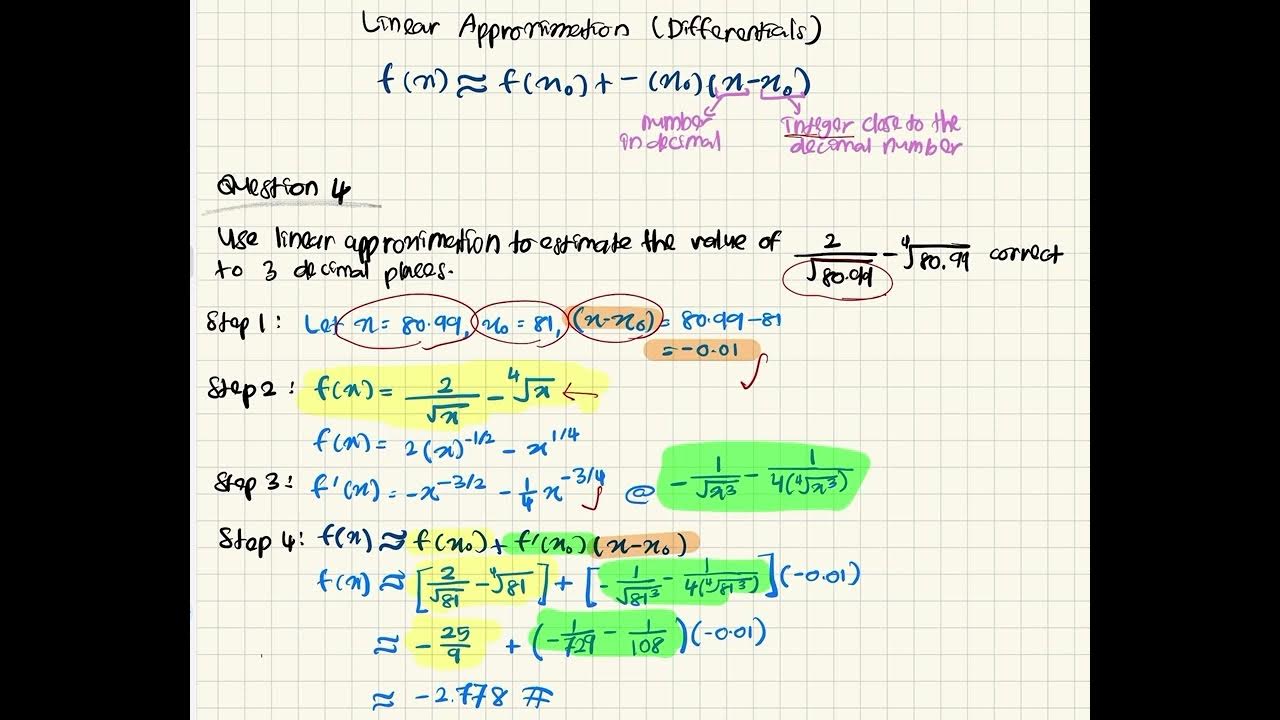 Linear Approximation (Differentials)
f(x) ≈ f(x₀) + - (x₀)(x-x₀)
number in decimal
integer close to the decimal number
Question 4
Use linear approximation to estimate the value of 2/√80.99 - ⁴√80.99 correct
to 3 decimal places.
Step 1: Let x = 80.99, x₀ = 81, (x-x₀) = 80.99-81
= -0.01
Step 2: f(x) = 2/√x - ⁴√x ←
f(x) = 2(x)^-1/2 - x^1/4
Step 3: f'(x) = -x^-3/2 - 1/4 x^-3/4 @ -1/√x³ - 1/4(⁴√x³)
Step 4: f(x) ≈ f(x₀) + f'(x₀)(x-x₀)
f(x) ≈ [2/√81 - ⁴√81] + [-1/√81³ - 1/4(⁴√81³)](-0.01)
≈ -25/9 + (-1/729 - 1/108)(-0.01)
≈ -2.778 #